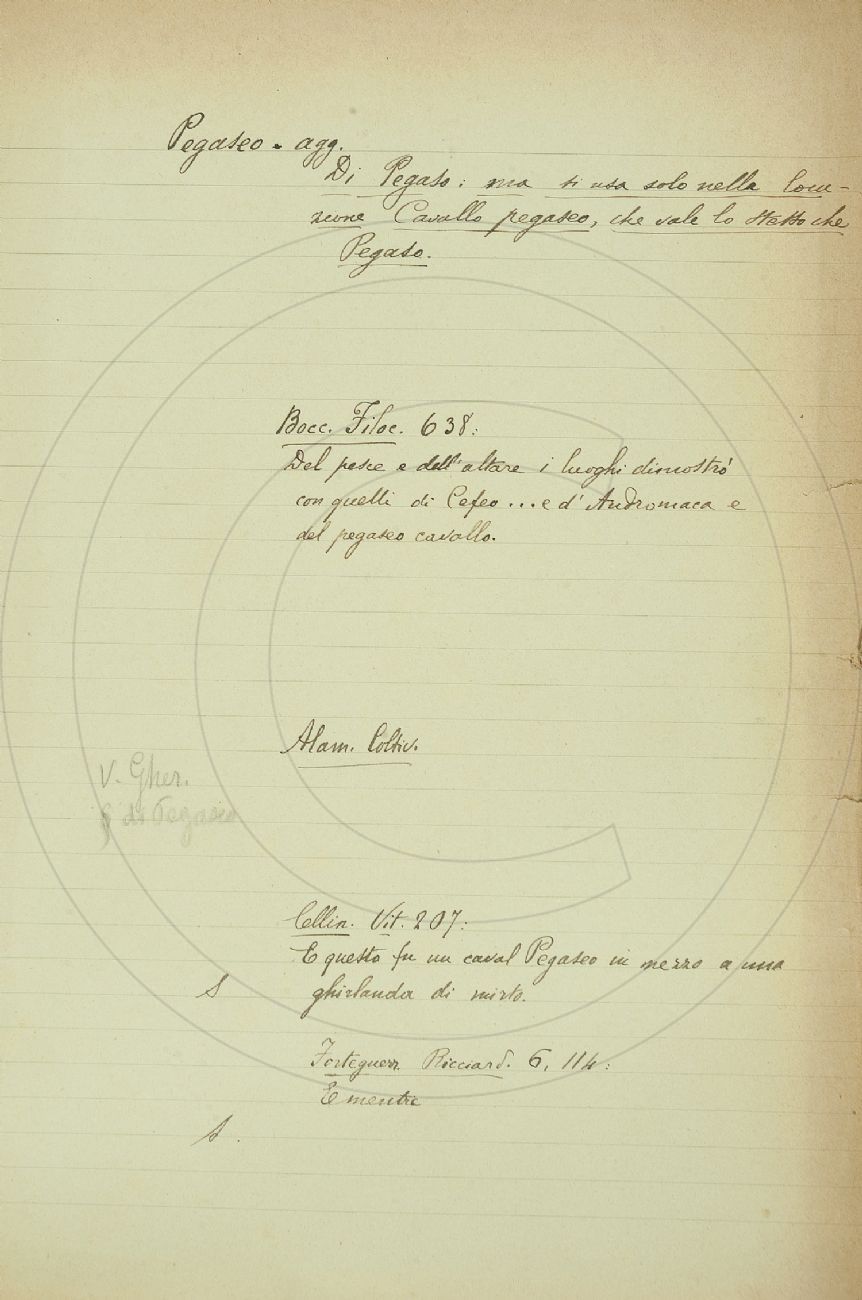 Pegaseo - agg.
Di Pegaso: ma si usa solo nella locu-
zione Cavallo pegaseo, che vale lo stesso che
Pegaso.
Bocc. Filoc. 638:
Del pesce e dell'altare i luoghi dimostrò
con quelli di Cefeo ... e d'Andromaca e
del pegaseo cavallo.
Alam. Coltiv.
V. Gher.
§ di Pegaseo
Cellin. Vit. 207:
E questo fu un caval Pegaseo in mezzo a una
S
ghirlanda di mirto.
Forteguerr. Ricciard. 6, 114:
E mentre
S.